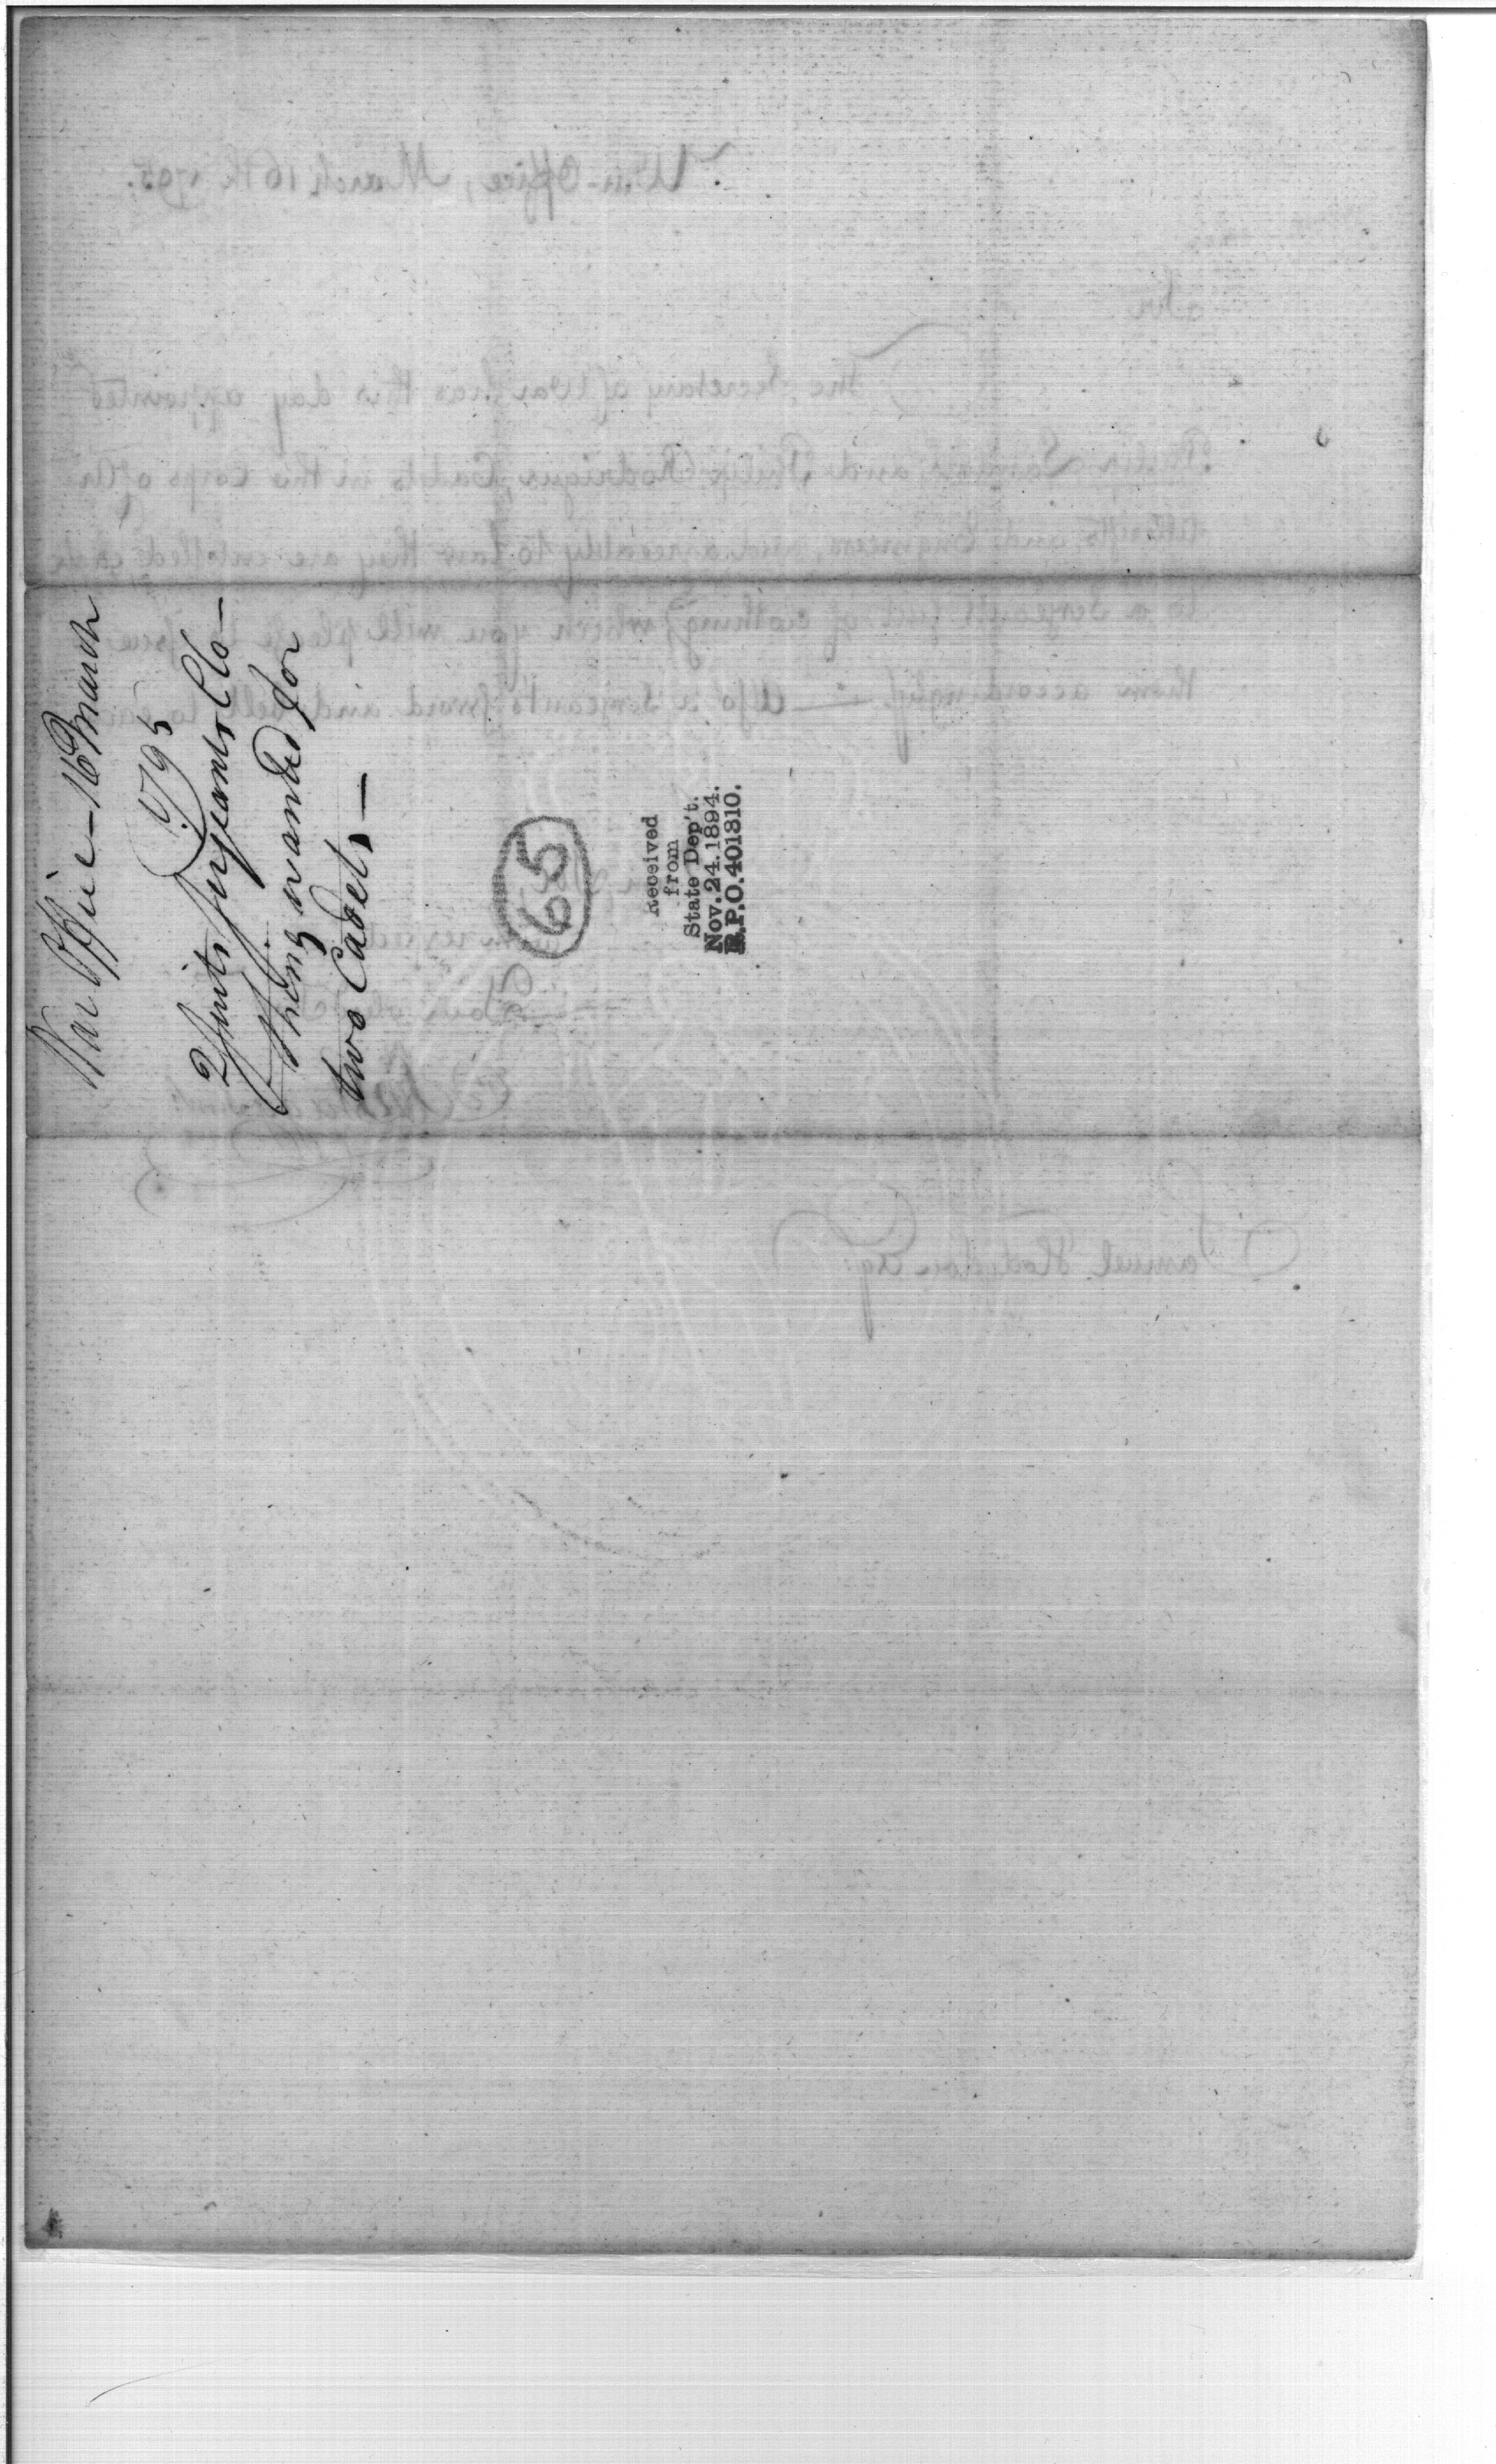 War Office – 16 March
1795
2 suits serjeants Clo-
thing wanted for
two Cadets –
65
Received
from
State Dep't.
Nov. 24. 1894.
R.P.O. 401310.
War-Office, March 16th 1795.
Sir
The Secretary of War has this day appointed
and Philip Rodrigue, Cadets in the Corps of Ar
tillerists and Engineers, and agreeably to law they are entitled each
to a Serjeants suit of clothing, which you will please to issue
them accordingly. — Also a serjeants sword and belt to each
Samuel Hodgdon Esqr.